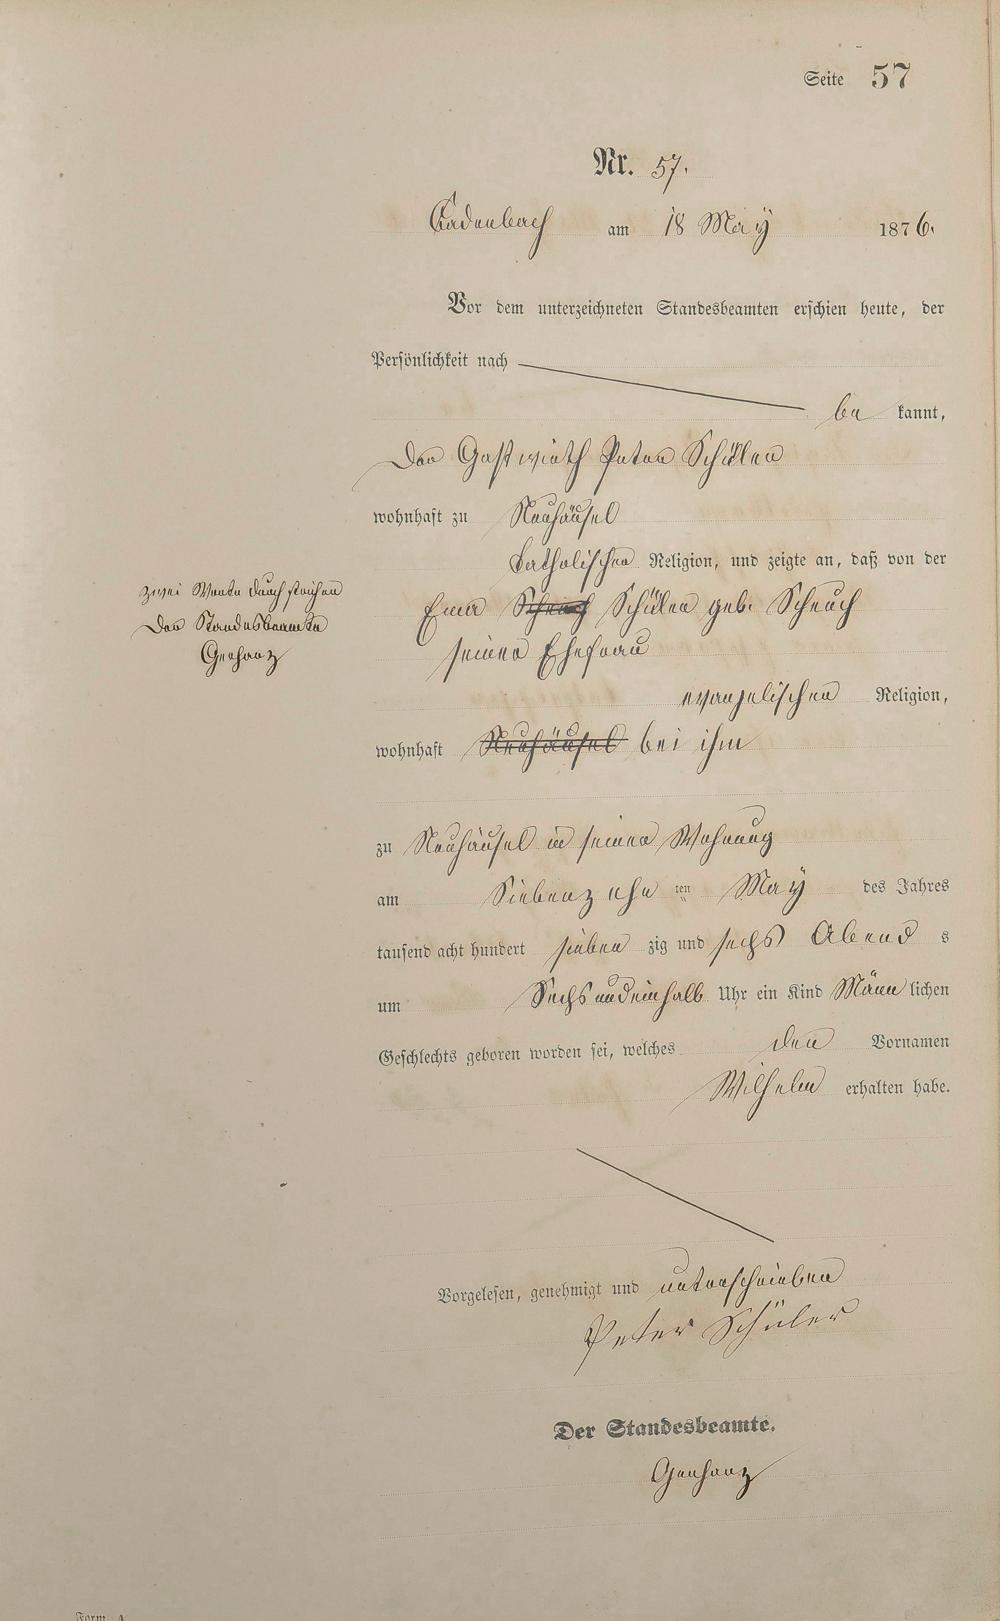 Seite 57
Nr. 57.
Cadenbach am 18 Maÿ 1876.
Vor dem unterzeichneten Standesbeamten erschien heute, der
Persönlichkeit nach
be kannt,
Der Gastwirth Peter Schüler
wohnhaft zu Neuhäusel
katholischer Religion, und zeigte an, daß von der
zwei Worte durchstrichen
Der Standesbeamte
Gerharz
Ema Scheuch Schüler geb. Scheuch
seiner Ehefrau
evangelischer Religion,
wohnhaft Neuhäusel bei ihm
zu Neuhäusel in seiner Wohnung
am Siebenzehn ten Maÿ des Jahres
tausend acht hundert sieben zig und sechs Abend s
um Sechsundeinhalb Uhr ein Kind Männ lichen
Geschlechts geboren worden sei, welches den Vornamen
Wilhelm erhalten habe.
Vorgelesen, genehmigt und unterschrieben
Peter Schüler
Der Standesbeamte.
Gerharz